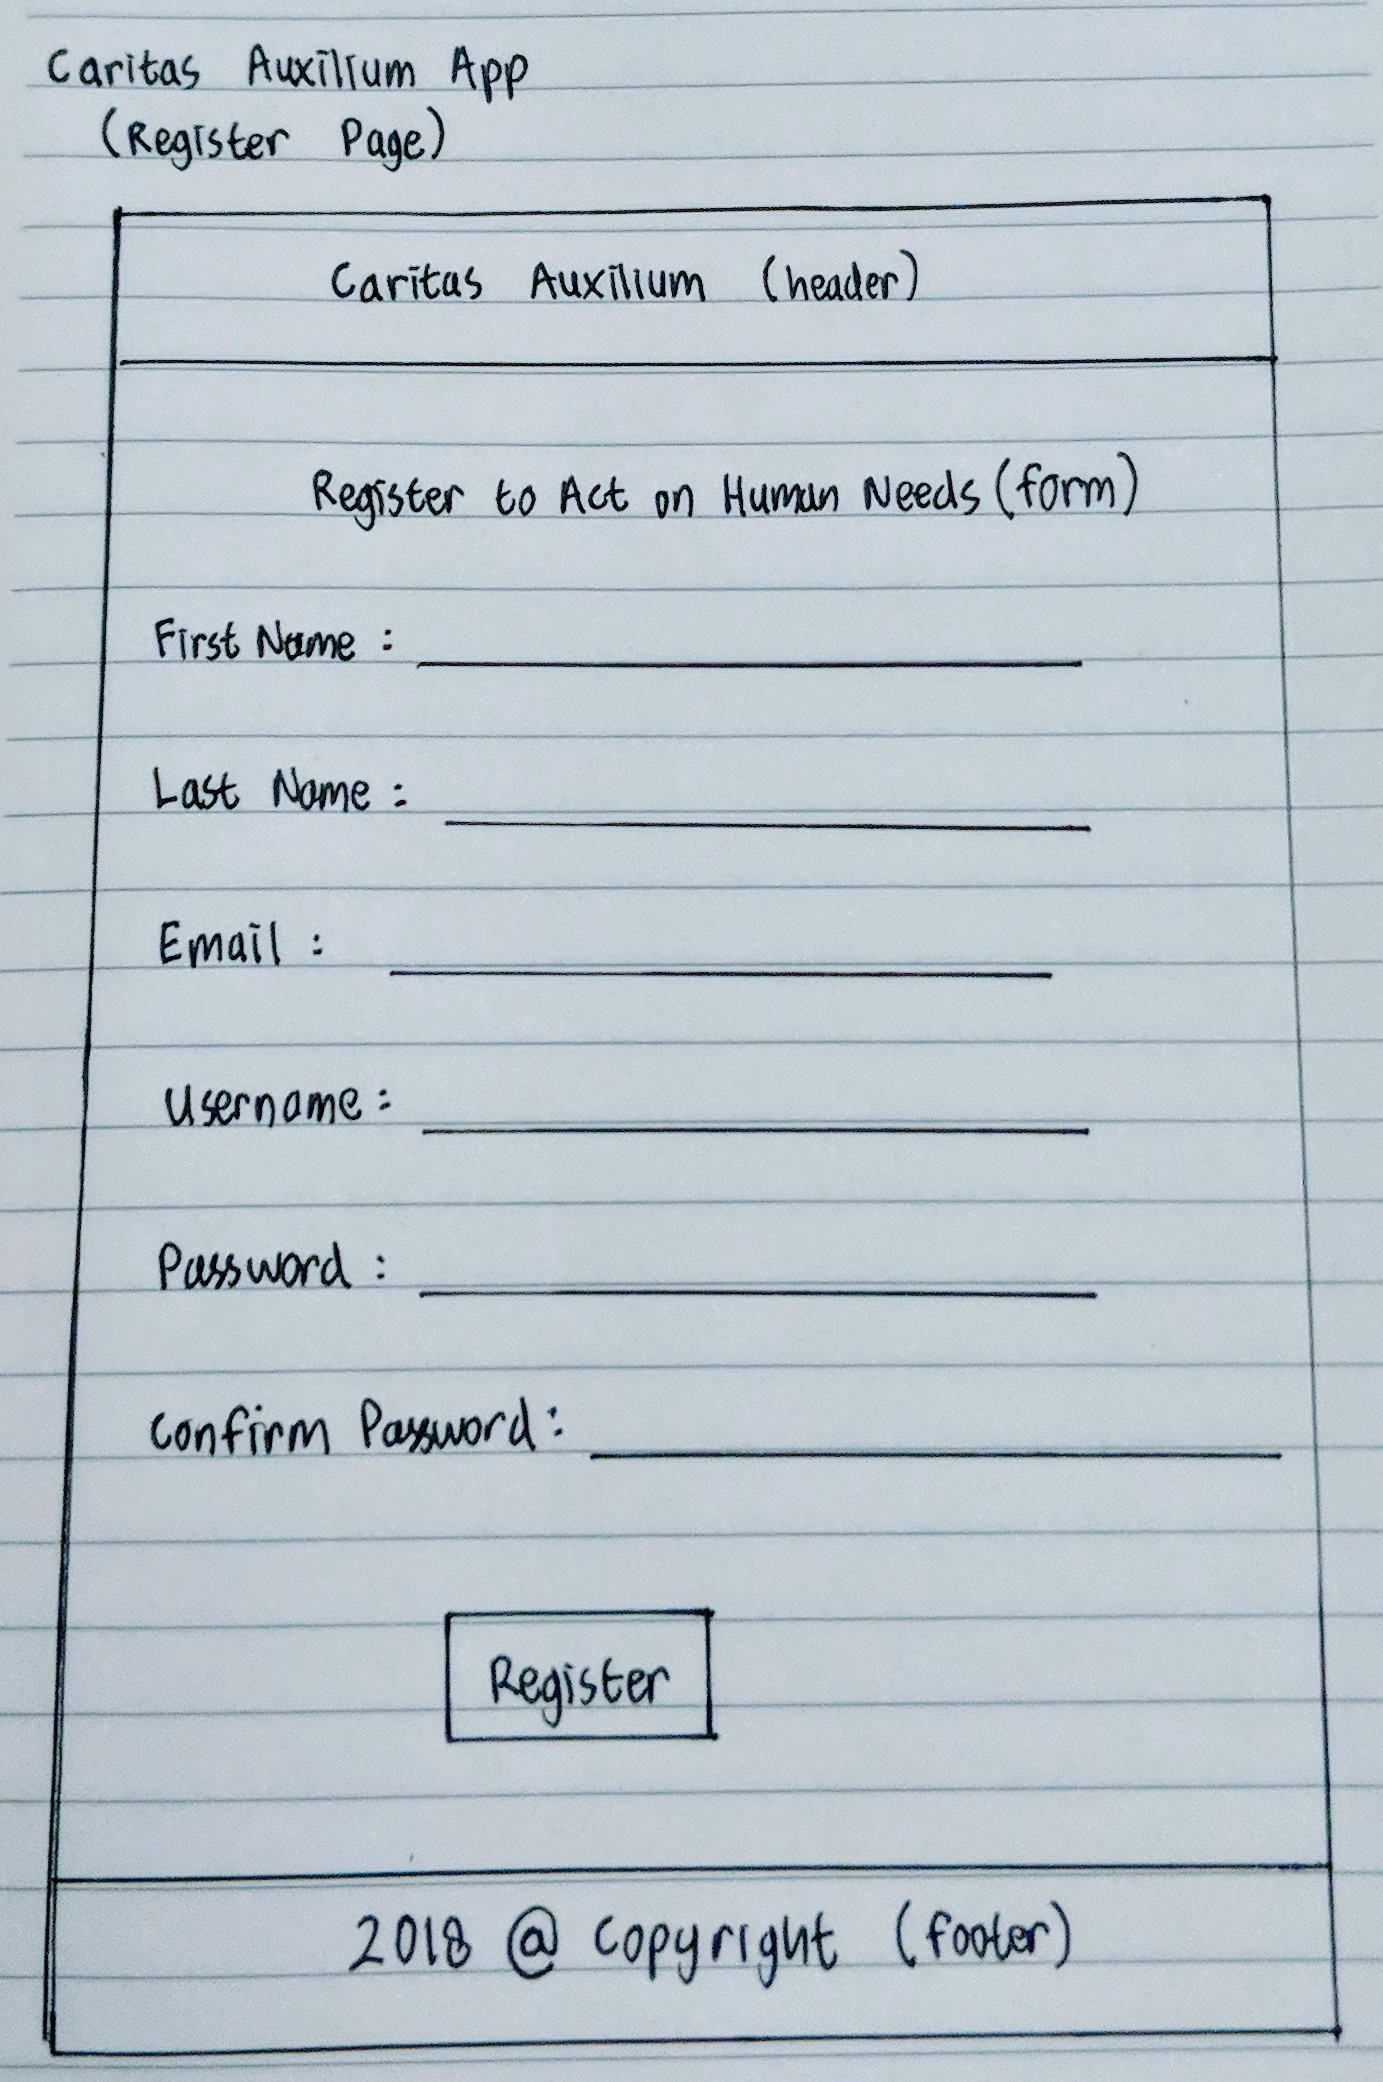 Caritas Auxilium App
(Register Page)
Caritas Auxilium (header)
Register to Act on Human Needs (form)
First Name :
Last Name :
Email :
Username :
Password :
Confirm Password :
Register
2018 @ Copyright (footer)